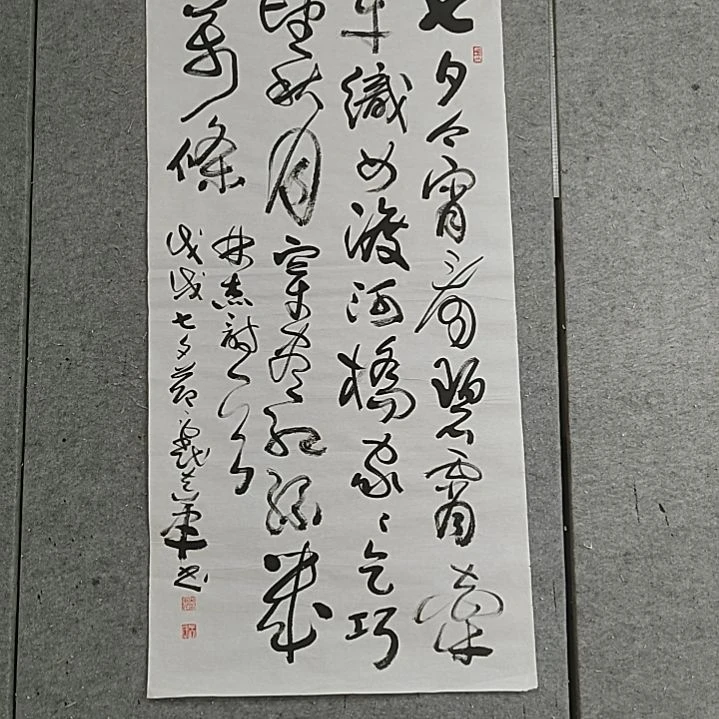 七夕今宵看碧霄牽
牛織女渡河橋家々乞巧
望秋月穿盡紅絲幾
萬條
林杰詩一首
戊戌七夕節
书